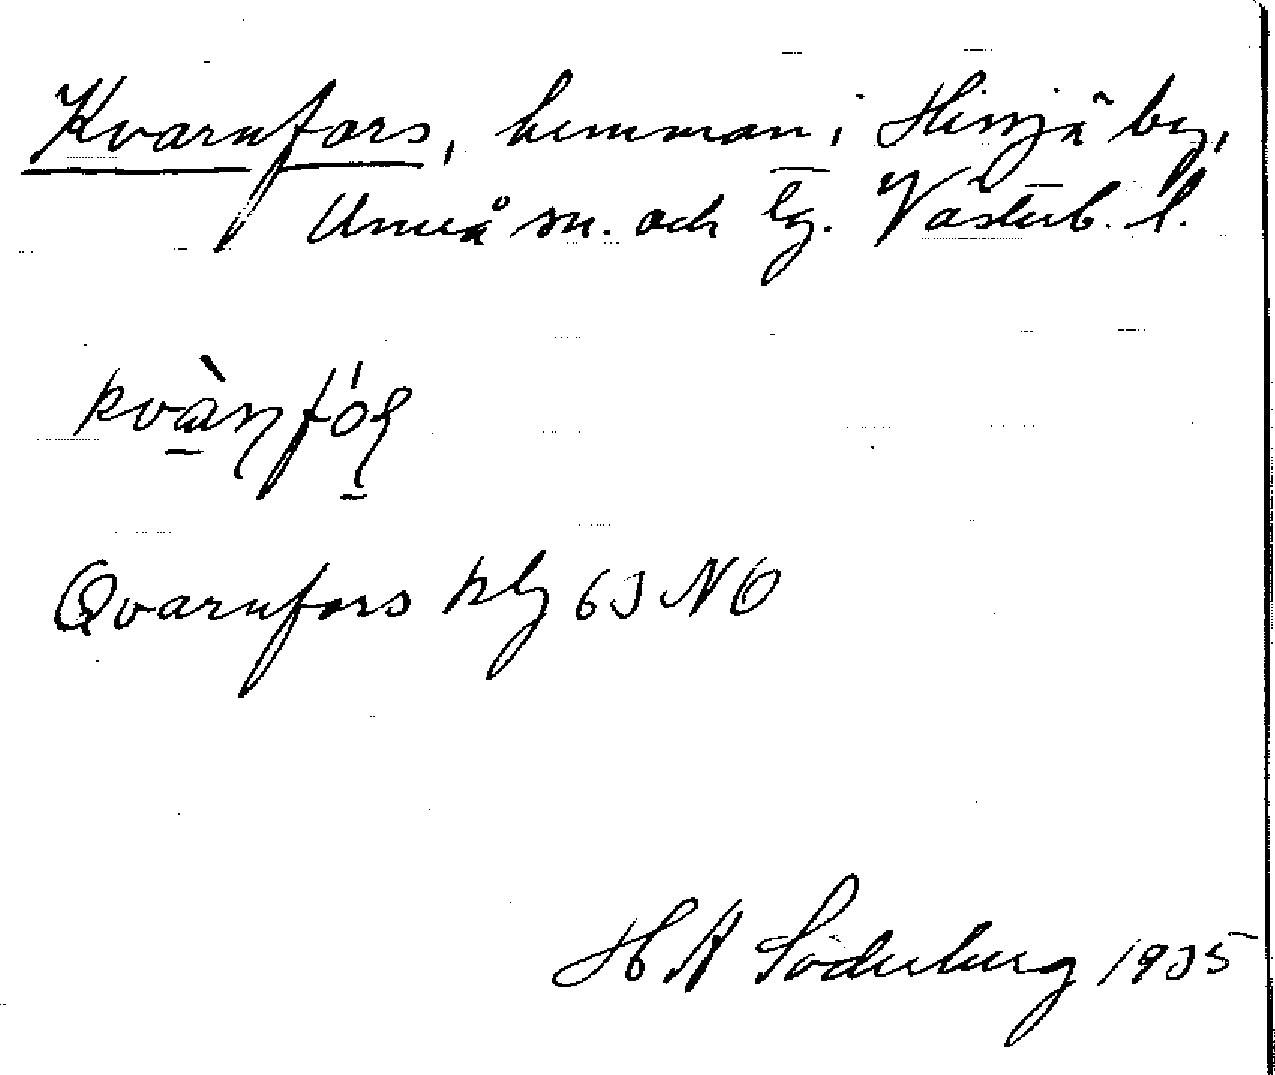 Kvarnfors, hemman i Hissjö by,
Umeå sn. och lg. Västerb. l.
Qvarnfors klg 63 NO
H A Söderberg 1935